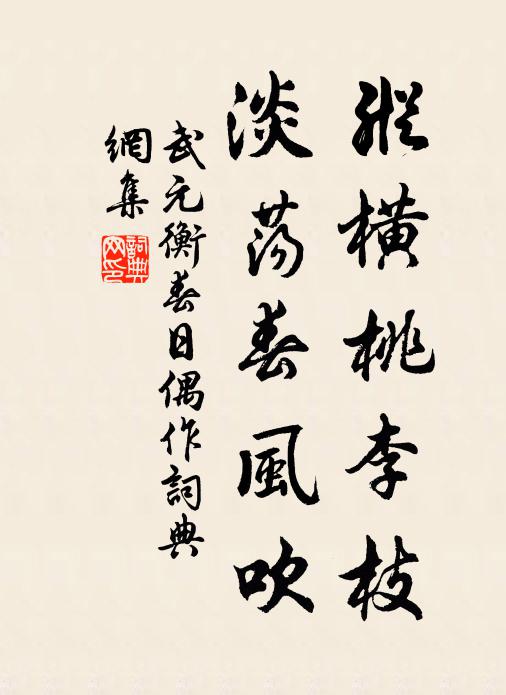 縱橫桃李枝
淡蕩春風吹
武元衡春日偶作詞典
網集
詞典
网印